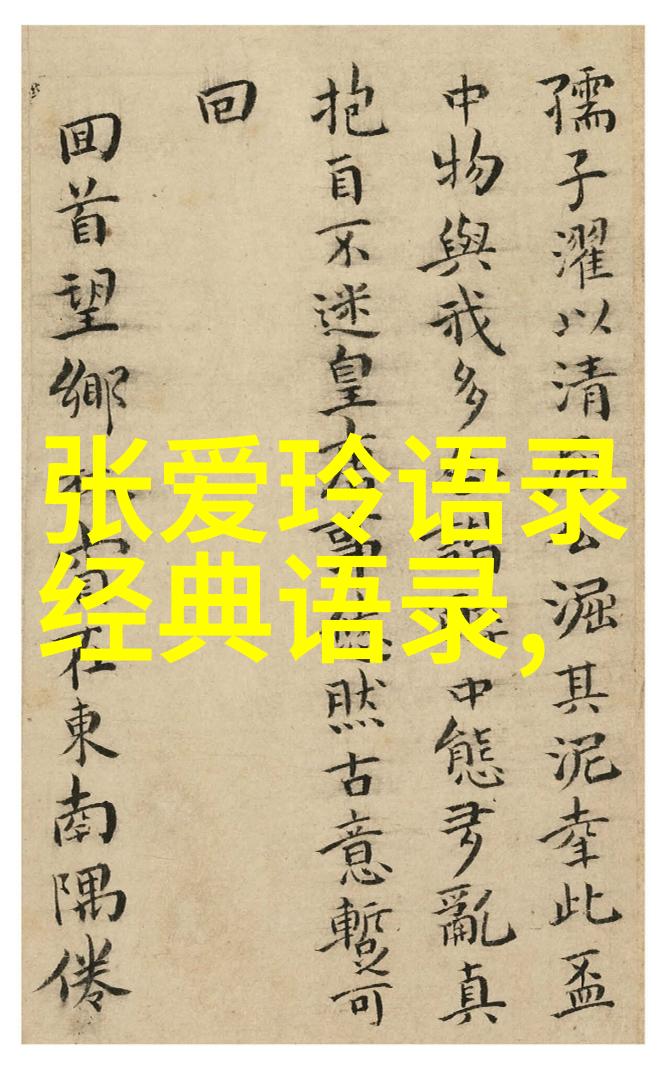 孺子濯以清
淈其泥羣此盃
中物與我多
中態多亂真
抱自不迷皇
然古意蹔可
回
回首望鄉
在東南隅倦
张爱玲语录
经典语录,